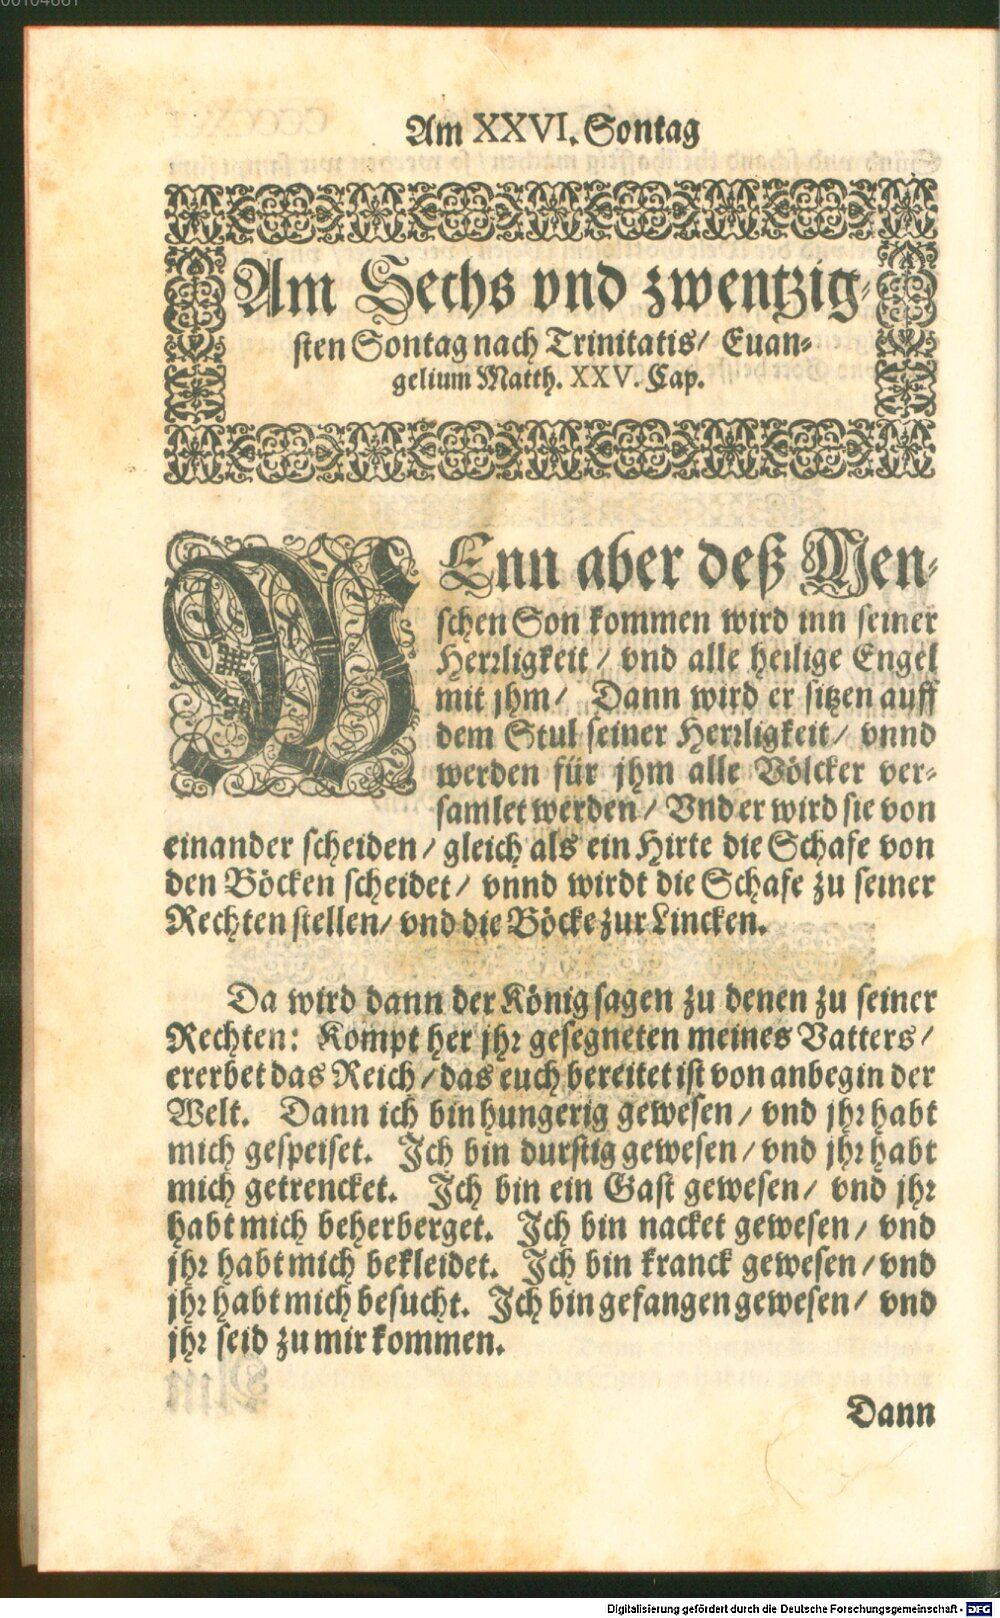 00104661
Am XXVI. Sontag
Am Sechs vnd zwentzig-
sten Sontag nach Trinitatis/ Euan-
gelium Matth. XXV. Cap.
WEnn aber deß Men-
schen Son kommen wird inn seiner
Herrligkeit/ vnd alle heilige Engel
mit jhm/ Dann wird er sitzen auff
dem Stul seiner Herrligkeit/ vnnd
werden für jhm alle Völcker ver-
samlet werden/ Vnd er wird sie von
einander scheiden/ gleich als ein Hirte die Schafe von
den Böcken scheidet/ vnnd wirdt die Schafe zu seiner
Rechten stellen/ vnd die Böcke zur Lincken.
Da wird dann der König sagen zu denen zu seiner
Rechten: Kompt her jhr gesegneten meines Vatters/
ererbet das Reich/ das euch bereitet ist von anbegin der
Welt. Dann ich bin hungerig gewesen/ vnd jhr habt
mich gespeiset. Ich bin durstig gewesen/ vnd jhr habt
mich getrencket. Ich bin ein Gast gewesen/ vnd jhr
habt mich beherberget. Ich bin nacket gewesen/ vnd
jhr habt mich bekleidet. Ich bin kranck gewesen/ vnd
jhr habt mich besucht. Ich bin gefangen gewesen/ vnd
jhr seid zu mir kommen.
Dann
Digitalisierung gefördert durch die Deutsche Forschungsgemeinschaft - DFG